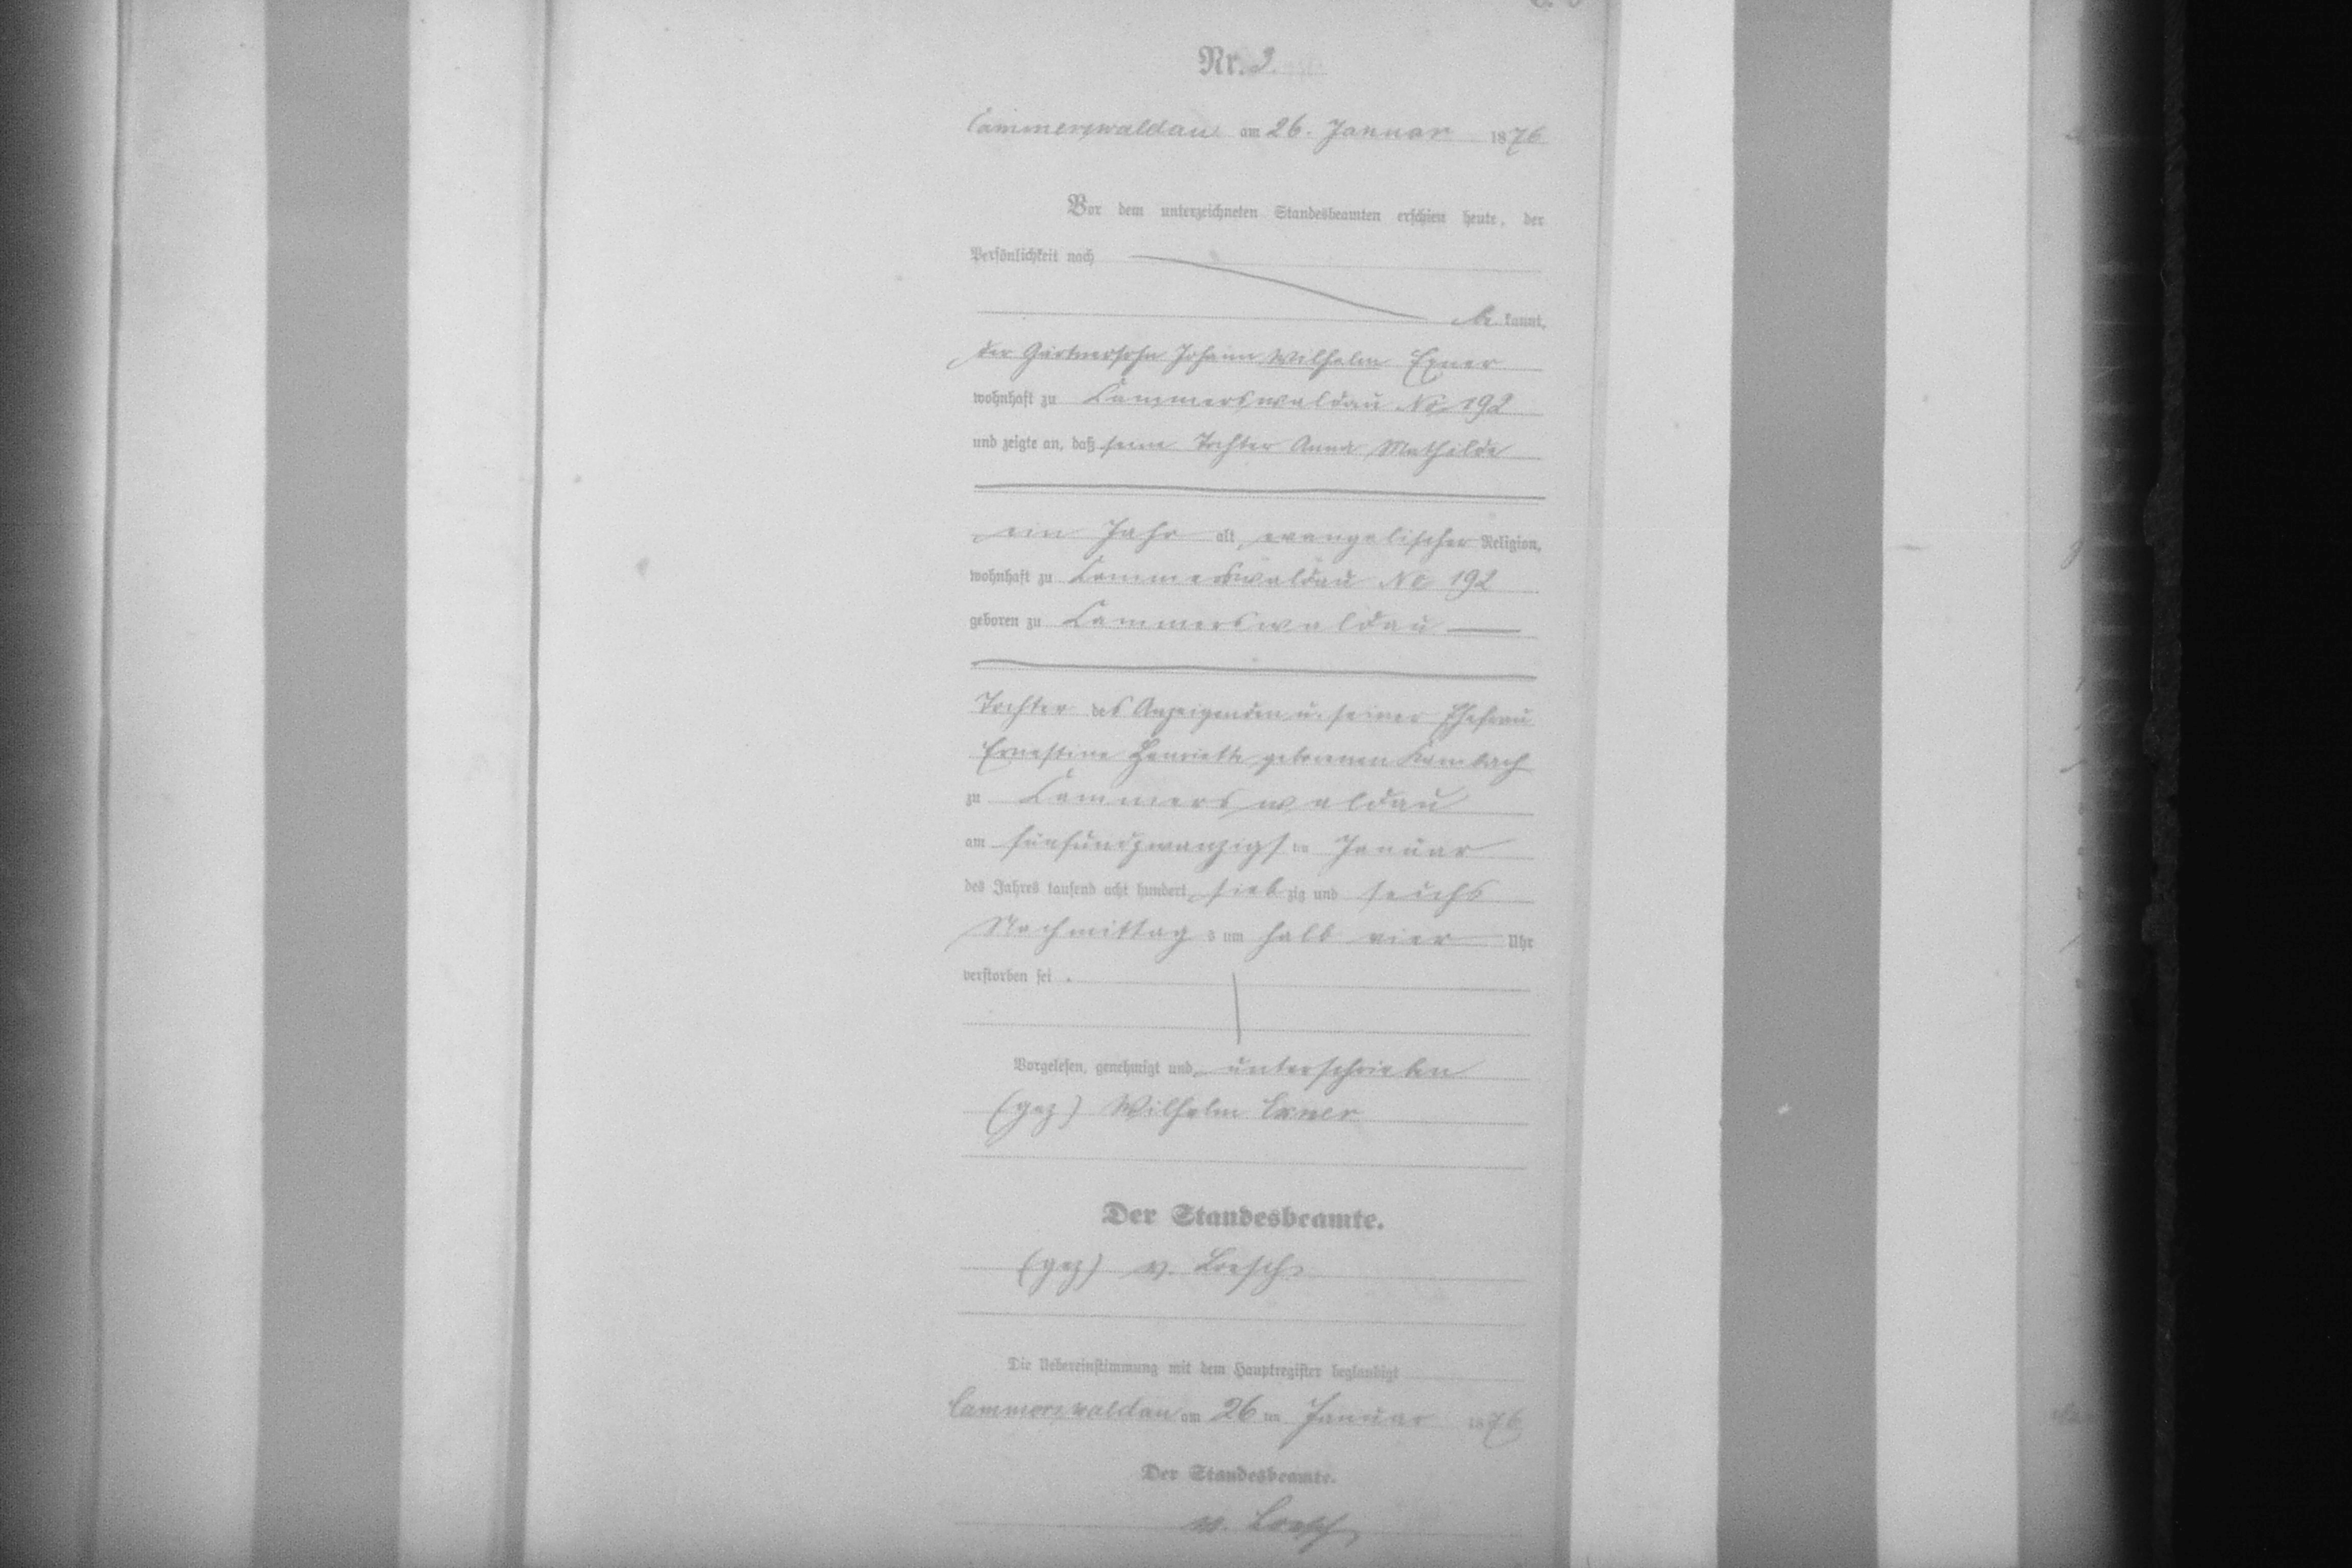 Nr. 2.
Cammerswaldau am 26. Januar 1876
Vor dem unterzeichneten Standesbeamten erschien heute, der
Persönlichkeit nach
be kannt,
der Gärtnersohn Johann Wilhelm Exner
wohnhaft zu Cammerswaldau No 192
und zeigte an, daß seine Tochter Anna Mathilde
ein Jahr alt, evangelischer Religion,
wohnhaft zu Cammerswaldau No 192
geboren zu Cammerswaldau
Tochter des Anzeigenden u. seiner Ehefrau
Ernestine Henriette geborenen Kambach
zu Cammerswaldau
am fünfundzwanzigsten Januar
des Jahres tausend acht hundert sieb zig und sechs
Nachmittag s um halb vier Uhr
verstorben sei.
Vorgelesen, genehmigt und unterschrieben
(gez) Wilhelm Exner
Der Standesbeamte.
(gez) v. Loesch
Die Uebereinstimmung mit dem Hauptregister beglaubigt
Cammerswaldau am 26 ten Januar 1876
Der Standesbeamte.
v. Loesch